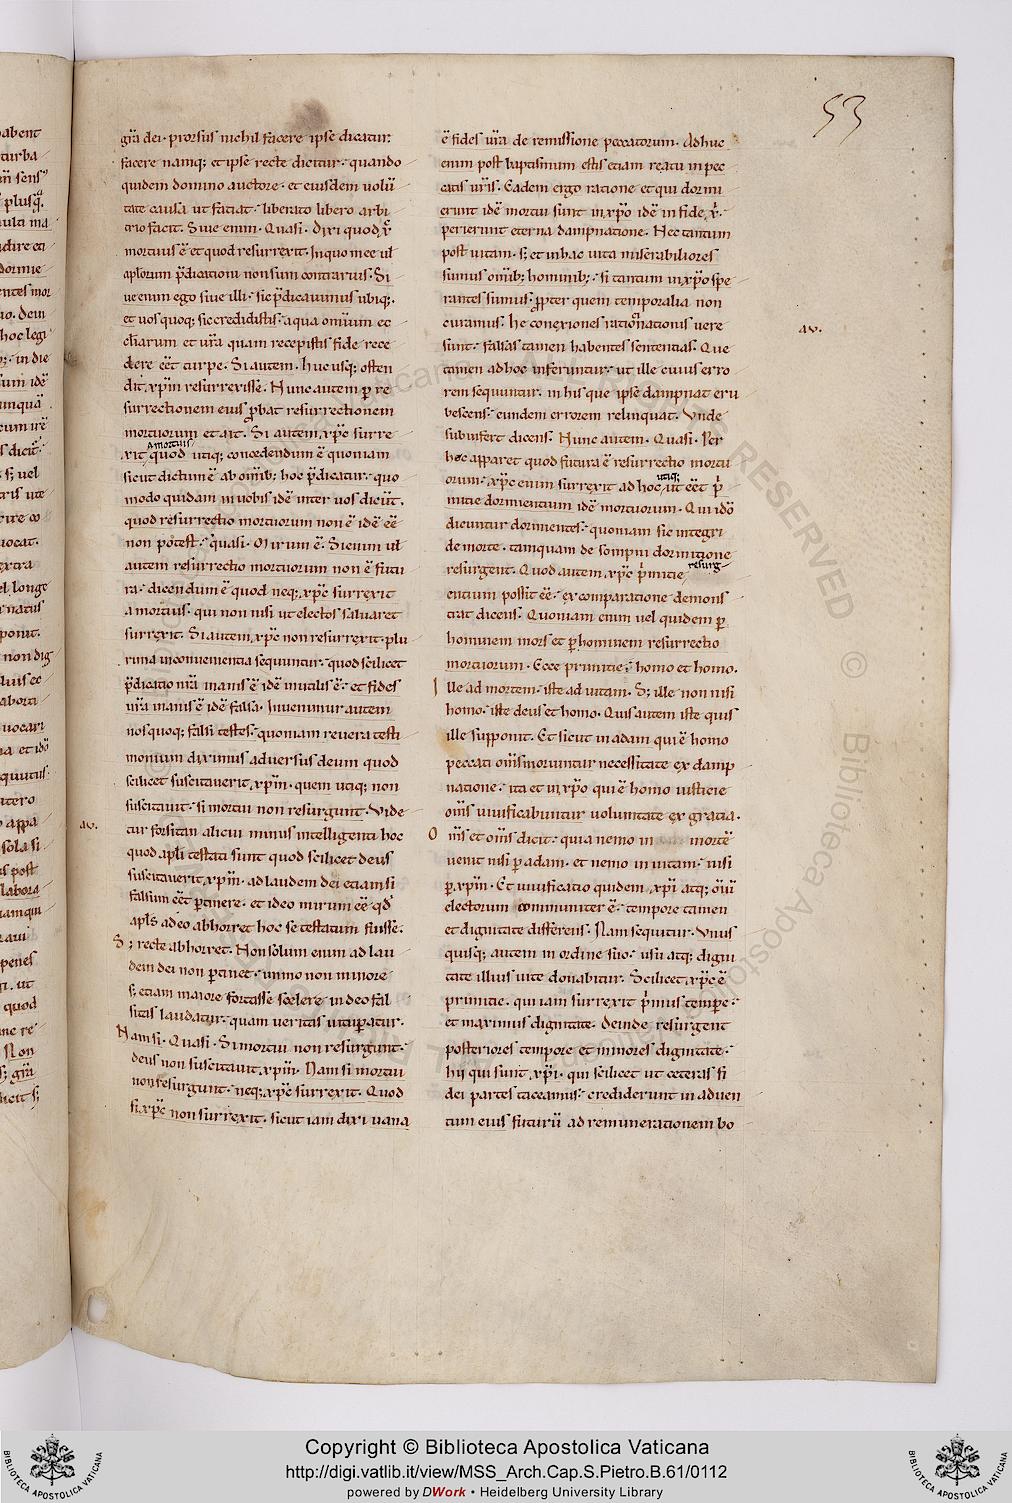 53
gr̄a dei · prorsus nichil facere ipse dicatur:
facere namq; et ipse recte dicitur · quando
quidem domino auctore · et eiusdem volū
tate causa ut faciat · liberato libero arbi
trio facit. Siue enim · Quasi · Dixi quod xp̄c
mortuus ē et quod resurrexit. In quo mee ul
aplorum p̄dicationi non sum contrarius. Si
ue enim ego siue illi · sic p̄dicauimus ubiq; ·
et uos quoq; sic credidistis · a qua omnium ec
cl̄iarum et ur̄a quam recepistis fide rece
dere eēt turpe. Si autem. Huc usq; osten
dit xp̄m resurrexisse. Nunc autem p re
surrectionem eius pbat resurrectionem
mortuorum et ait. Si autem xp̄c surre
xit a mortuis quod utiq; concedendum ē quoniam
sicut dictum ē ab omīb; hoc p̄dicatur · quo
modo quidam in uobis idē inter uos dicūt.
quod resurrectio mortuorum non ē idē eē
non potest · quasi · Mirum ē. Si enim ul
autem resurrectio mortuorum non ē futu
ra · dicendum ē quod neq; xp̄c surrexit
a mortuis · qui non nisi ut electos saluaret
surrexit. Si autem xp̄c non resurrexit · plu
rima inconuenientia sequuntur · quod scilicet
p̄dicatio nr̄a inanis ē idē inutilis ē · et fides
ur̄a inanis ē idē falsa. Inuenimur autem
nos quoq; falsi testes · quoniam reuera testi
monium diximus aduersus deum quod
scilicet suscitauerit xp̄m · quem utiq; non
suscitauit · si mortui non resurgunt. Vide
av. tur forsitan alicui minus intelligenti hoc
quod apl̄i testati sunt quod scilicet deus
suscitauerit xp̄m · ad laudem dei etiam si
falsum eēt ptinere · et ideo mirum eē qd̄
apl̄s adeo abhorret hoc se testatum fuisse.
S; recte abhorret. Non solum enim ad lau
dem dei non ptinet · immo non minore
s; etiam maiore fortasse scelere in deo fal
sitas laudatur · quam ueritas uituperatur.
Nam si. Quasi. Si mortui non resurgunt ·
deus non suscitauit xp̄m. Nam si mortui
non resurgunt · neq; xp̄c surrexit. Quod
si xp̄c non surrexit · sicut iam dixi uana
ē fides ur̄a de remissione peccatorum. Adhuc
enim post baptismum estis etiam reatu in pec
catis ur̄is. Eadem ergo ratione et qui dormi
erunt idē mortui sunt in xp̄o idē in fide xp̄i ·
perierunt eterna dampnatione. Nec tantum
post uitam · s; et in hac uita miserabiliores
sumus omīb; hominib; · si tantum in xp̄o spe
rantes sumus · ppter quem temporalia non
av. curamus. he conexiones rationationis uere
sunt · falsas tamen habentes sententias. Que
tamen ad hoc inferuntur · ut ille cuius erro
rem sequuntur in his que ipse dampnat eru
bescens · eundem errorem relinquat. Vnde
subinfert dicens. Nunc autem. Quasi. Per
hoc apparet quod futura ē resurrectio mortu
orum · xp̄c enim surrexit ad hoc utiq; ut eēt p̄
mitie dormientium idē mortuorum. Qui idō
dicuntur dormientes · quoniam sic integri
de morte · tamquam de sompni dormitione
resurgent. Quod autem xp̄c p̄mitie resurg
entium possit eē · ex comparatione demons
trat dicens. Quoniam enim uel quidem p
hominem mors et p hominem resurrectio
mortuorum. Ecce primitie · homo et homo.
Ille ad mortem · iste ad uitam. S; ille non nisi
homo · iste deus et homo. Quis autem iste quis
ille supponit. Et sicut in adam qui ē homo
peccati om̄s moriuntur necessitate ex damp
natione · ita et in xp̄o qui ē homo iusticie
om̄s uiuificabuntur uoluntate ex gratia.
Om̄s et om̄s dicit · quia nemo in mortē
uenit nisi p adam · et nemo in uitam · nisi
p xp̄m. Et uiuificatio quidem xp̄i atq; oīū
electorum communiter ē · tempore tamen
et dignitate differens. Nam sequitur. Vnus
quisq; autem in ordine suo · usu atq; digni
tate illius uite donabitur. Scilicet xp̄c ē
primitie · qui iam surrexit p̄mus tempe ·
et maximus dignitate. deinde resurgent
posteriores tempore et minores dignitate ·
hii qui sunt xp̄i · qui scilicet ut ceteras fi
dei partes taceamus · crediderunt in aduen
tum eius futurū ad remunerationem bo
Copyright © Biblioteca Apostolica Vaticana
http://digi.vatlib.it/view/MSS_Arch.Cap.S.Pietro.B.61/0112
powered by DWork • Heidelberg University Library